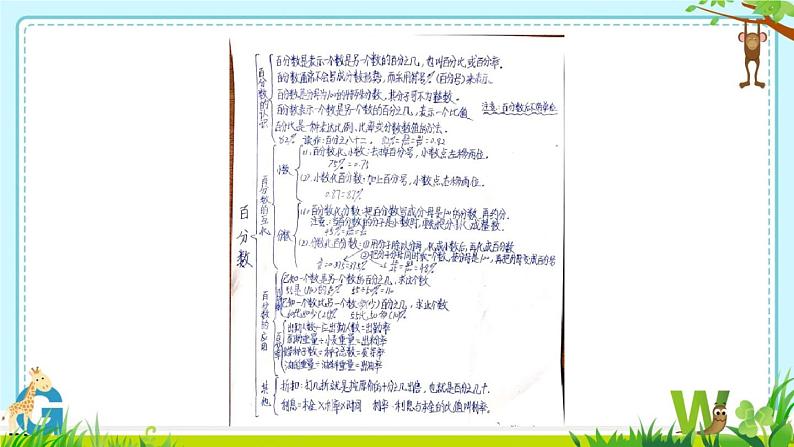 百分数
百分数的认识
百分数是表示一个数是另一个数的百分之几,也叫百分比,或百分率。
百分数通常不会写成分数形势,而采用符号%(百分号)来表示。
百分数是分母为100的特殊分数,其分子可不为整数。
百分数表示一个数是另一个数的百分之几,表示一个比值
注意:百分数后不带单位
百分比是一种表达比例、比率或分数数值的方法。
82% 读作:百分之八十二。
百分数的互化
小数
(1).百分数化小数:去掉百分号,小数点左移两位。
75%=0.75
(2).小数化百分数:加上百分号,小数点右移两位。
0.87=87%
分数
(1).百分数化分数:把百分数写成分母是100的分数,再约分。
注意:当百分数的分子是小数时,
(2).分数化百分数:①用分子除以分母,化成小数后,再化成百分数
②把分子分母同时乘一个数,使分母是100,再把分母变成百分号
百分数的应用
已知一个数是另一个数的百分之几,求这个数
已知一个数比另一个数多(少)百分之几,求这个数
出勤人数÷总出勤人数=出勤率
面粉重量÷小麦重量=出粉率
÷种子总数=发芽率
油的重量÷油料重量=出油率
其他
折扣:打几折就是按原价的十分之几出售,也就是百分之几十.
利息=本金×利率×时间 利率-利息与本金的比值叫利率。
G
W